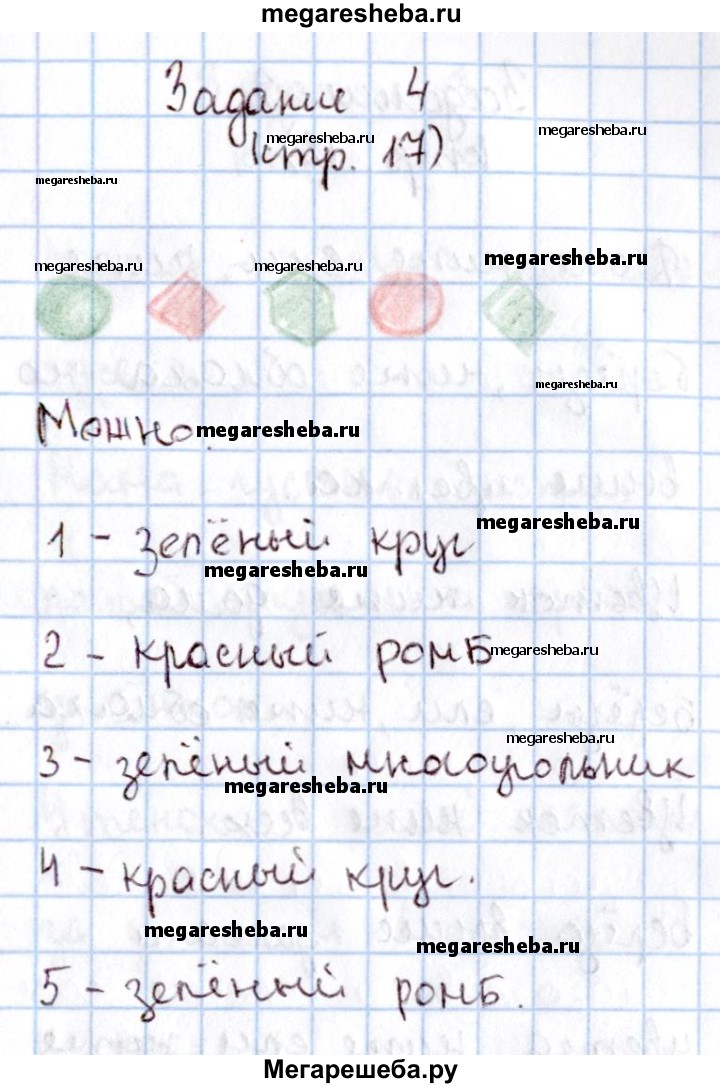 megaresheba.ru
Задание 4
megaresheba.ru
megaresheba.ru
(стр. 17)
megaresheba.ru
megaresheba.ru
megaresheba.ru
megaresheba.ru
megaresheba.ru
Можно.
megaresheba.ru
1 - зелёный круг
megaresheba.ru
megaresheba.ru
2 - красный ромб
megaresheba.ru
megaresheba.ru
3 - зелёный многоугольник
megaresheba.ru
4 - красный круг.
megaresheba.ru
megaresheba.ru
5 - зелёный ромб.
Мегарешеба.ру